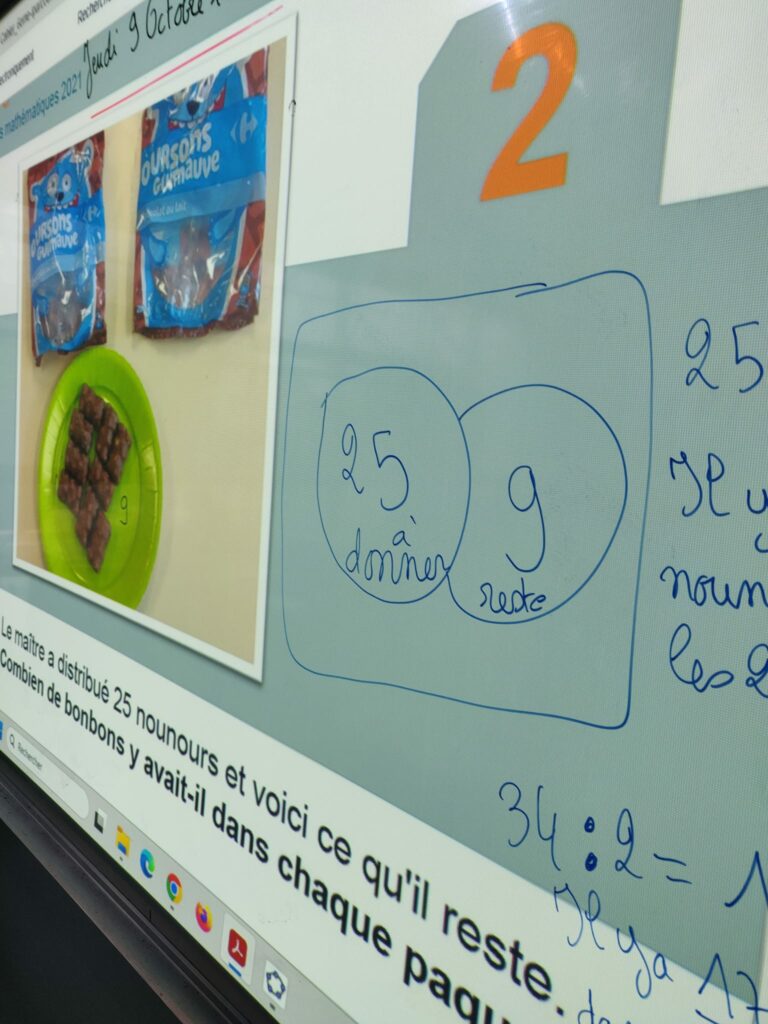 mathématiques 2021
Jeudi 9 Octobre
OURSONS
GUIMAUVE
OURSONS
GUIMAUVE
Chocolat au lait
9
2
25
à
donner
9
reste
25
Il y
les 2
34 : 2 = 1
Il y a 17
Le maître a distribué 25 nounours et voici ce qu'il reste.
Combien de bonbons y avait-il dans chaque paqu
Rechercher